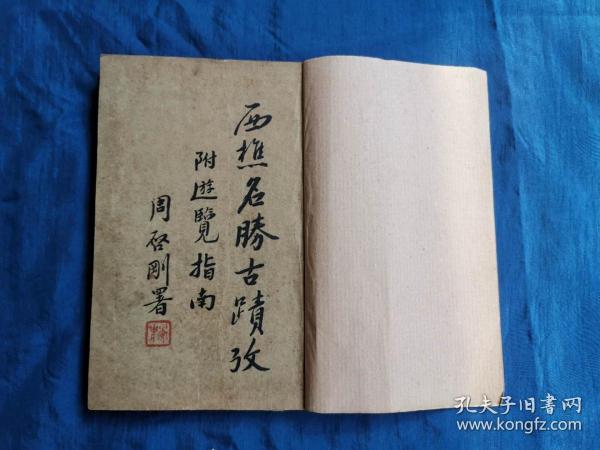 西樵名勝古蹟攷
附遊覽指南
周啓剛署
孔夫子旧书网
www.kongfz.com